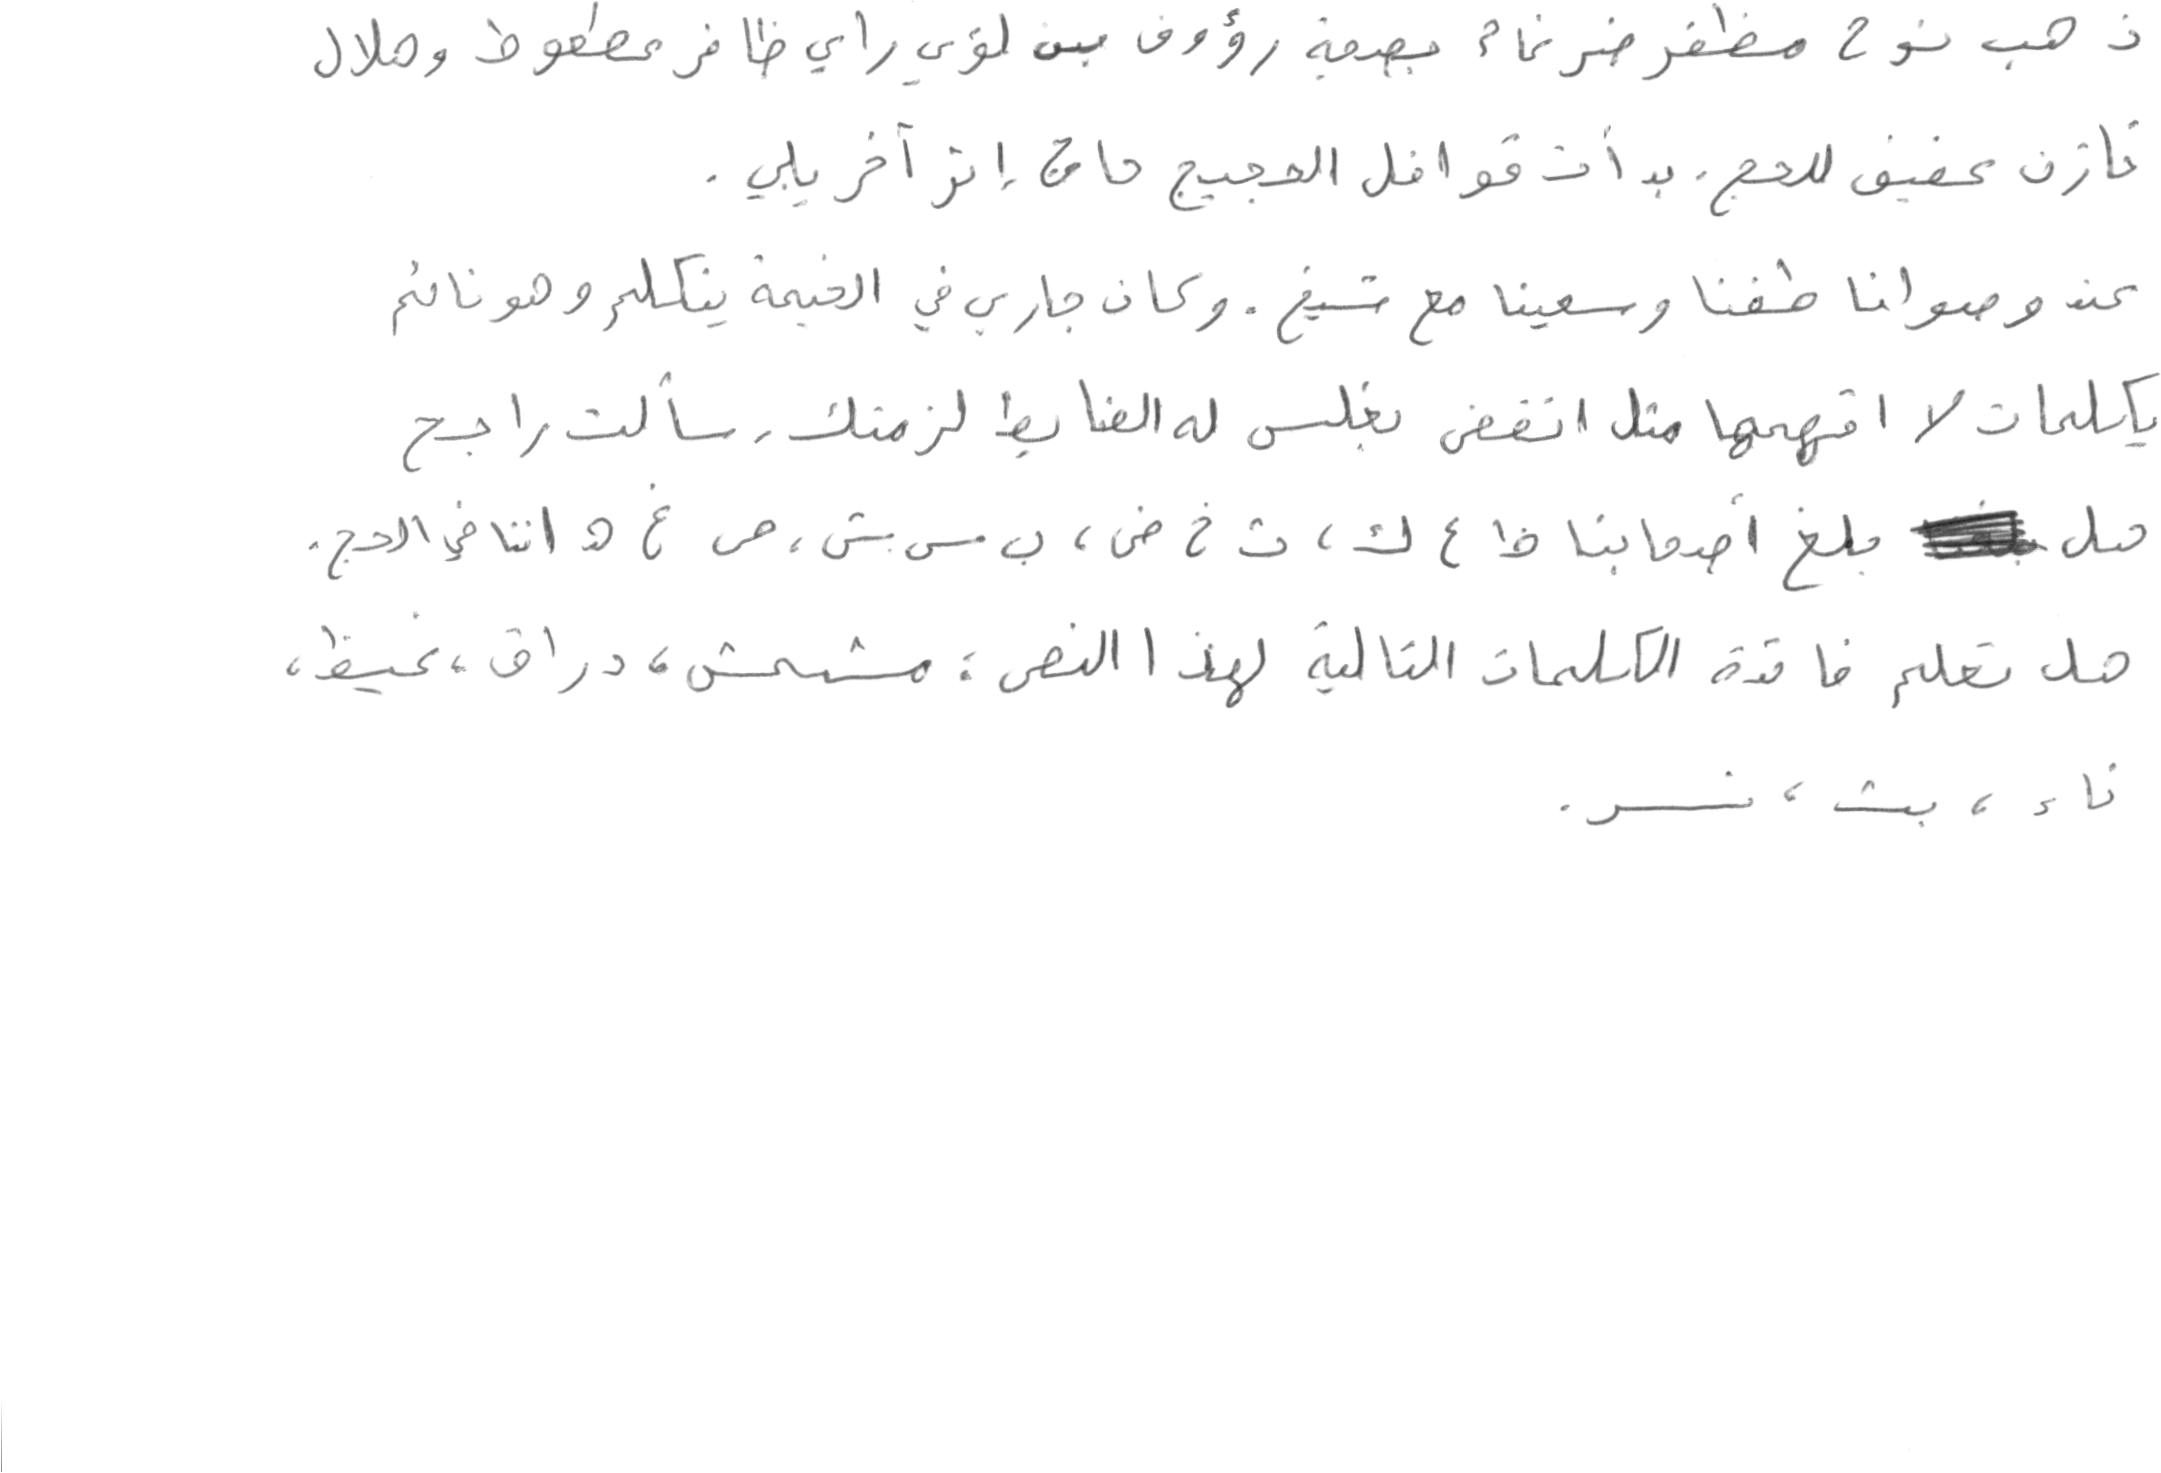 ذهب نوح مظفر ضرغام بصحبة رؤوف بن لؤي راي ظافر عطعوط وهلال
خازن عفيف للحج. بدأت قوافل الحجيج حاج إثر آخر يلبي.
عند وصولنا طفنا وسعينا مع شيخ. وكان جاري في الخيمة يتكلم وهو نائم
بكلمات لا افهمها مثل انقض بغلس له الضابط لزمتك. سألت راجح
هل بلغ أصحابنا ظ ع ك، ث خ ض، ب س ش، ص غ ه اننا في الحج.
هل تعلم فائدة الكلمات التالية لهذا النص: مشمش، دراق، غيظ،
ناء، بث، نسر.